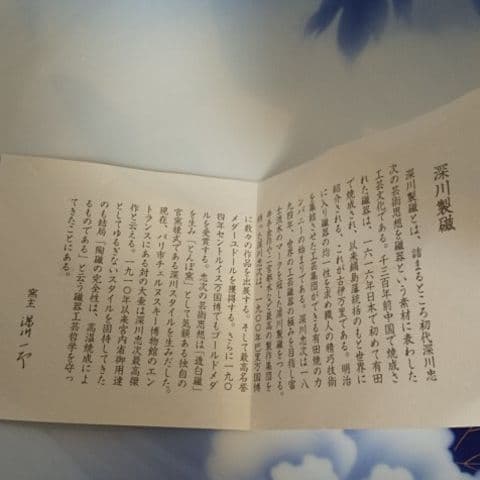 深川製磁
深川製磁とは、詰まるところ初代深川忠
次の芸術思想を磁器という素材に表わした
工芸文化である。千三百年前中国で焼成さ
れた磁器は、一六一六年日本で初めて有田
で焼成され、以来鍋島藩統括のもと世界に
紹介される。これが古伊万里である。明治
に入り磁器の均一性を求め職人の精巧技術
を集結させた工芸集団ができる有田焼の力
ンパニーの始まりである。深川忠次は一八
九四年、世界の工芸磁器の極みを目指し富
士流水のマークを冠した深川製磁をつくる。
した深川忠次は、一九〇〇年巴里万国博
に数々の作品を出展する。そして最高名誉
メダーユドールを獲得する。さらに一九〇
四年セントルイス万国博でもゴールドメダ
ルを受賞する。忠次の芸術思想は「透白磁」
を生み「とんぼ窯」として気韻ある独自の
官窯様式である深川スタイルを生みだした。
現在、パリ市チェルヌスキー博物館のエン
トランスにある対の大壷は深川忠次最高傑
作と云える。一九一〇年以来宮内省御用達
としてゆるぎないスタイルを固持してきた
のも結局「陶磁の完全性は、高温焼成によ
るものである」と云う磁器工芸哲学を守っ
てきたことにある。
窯主